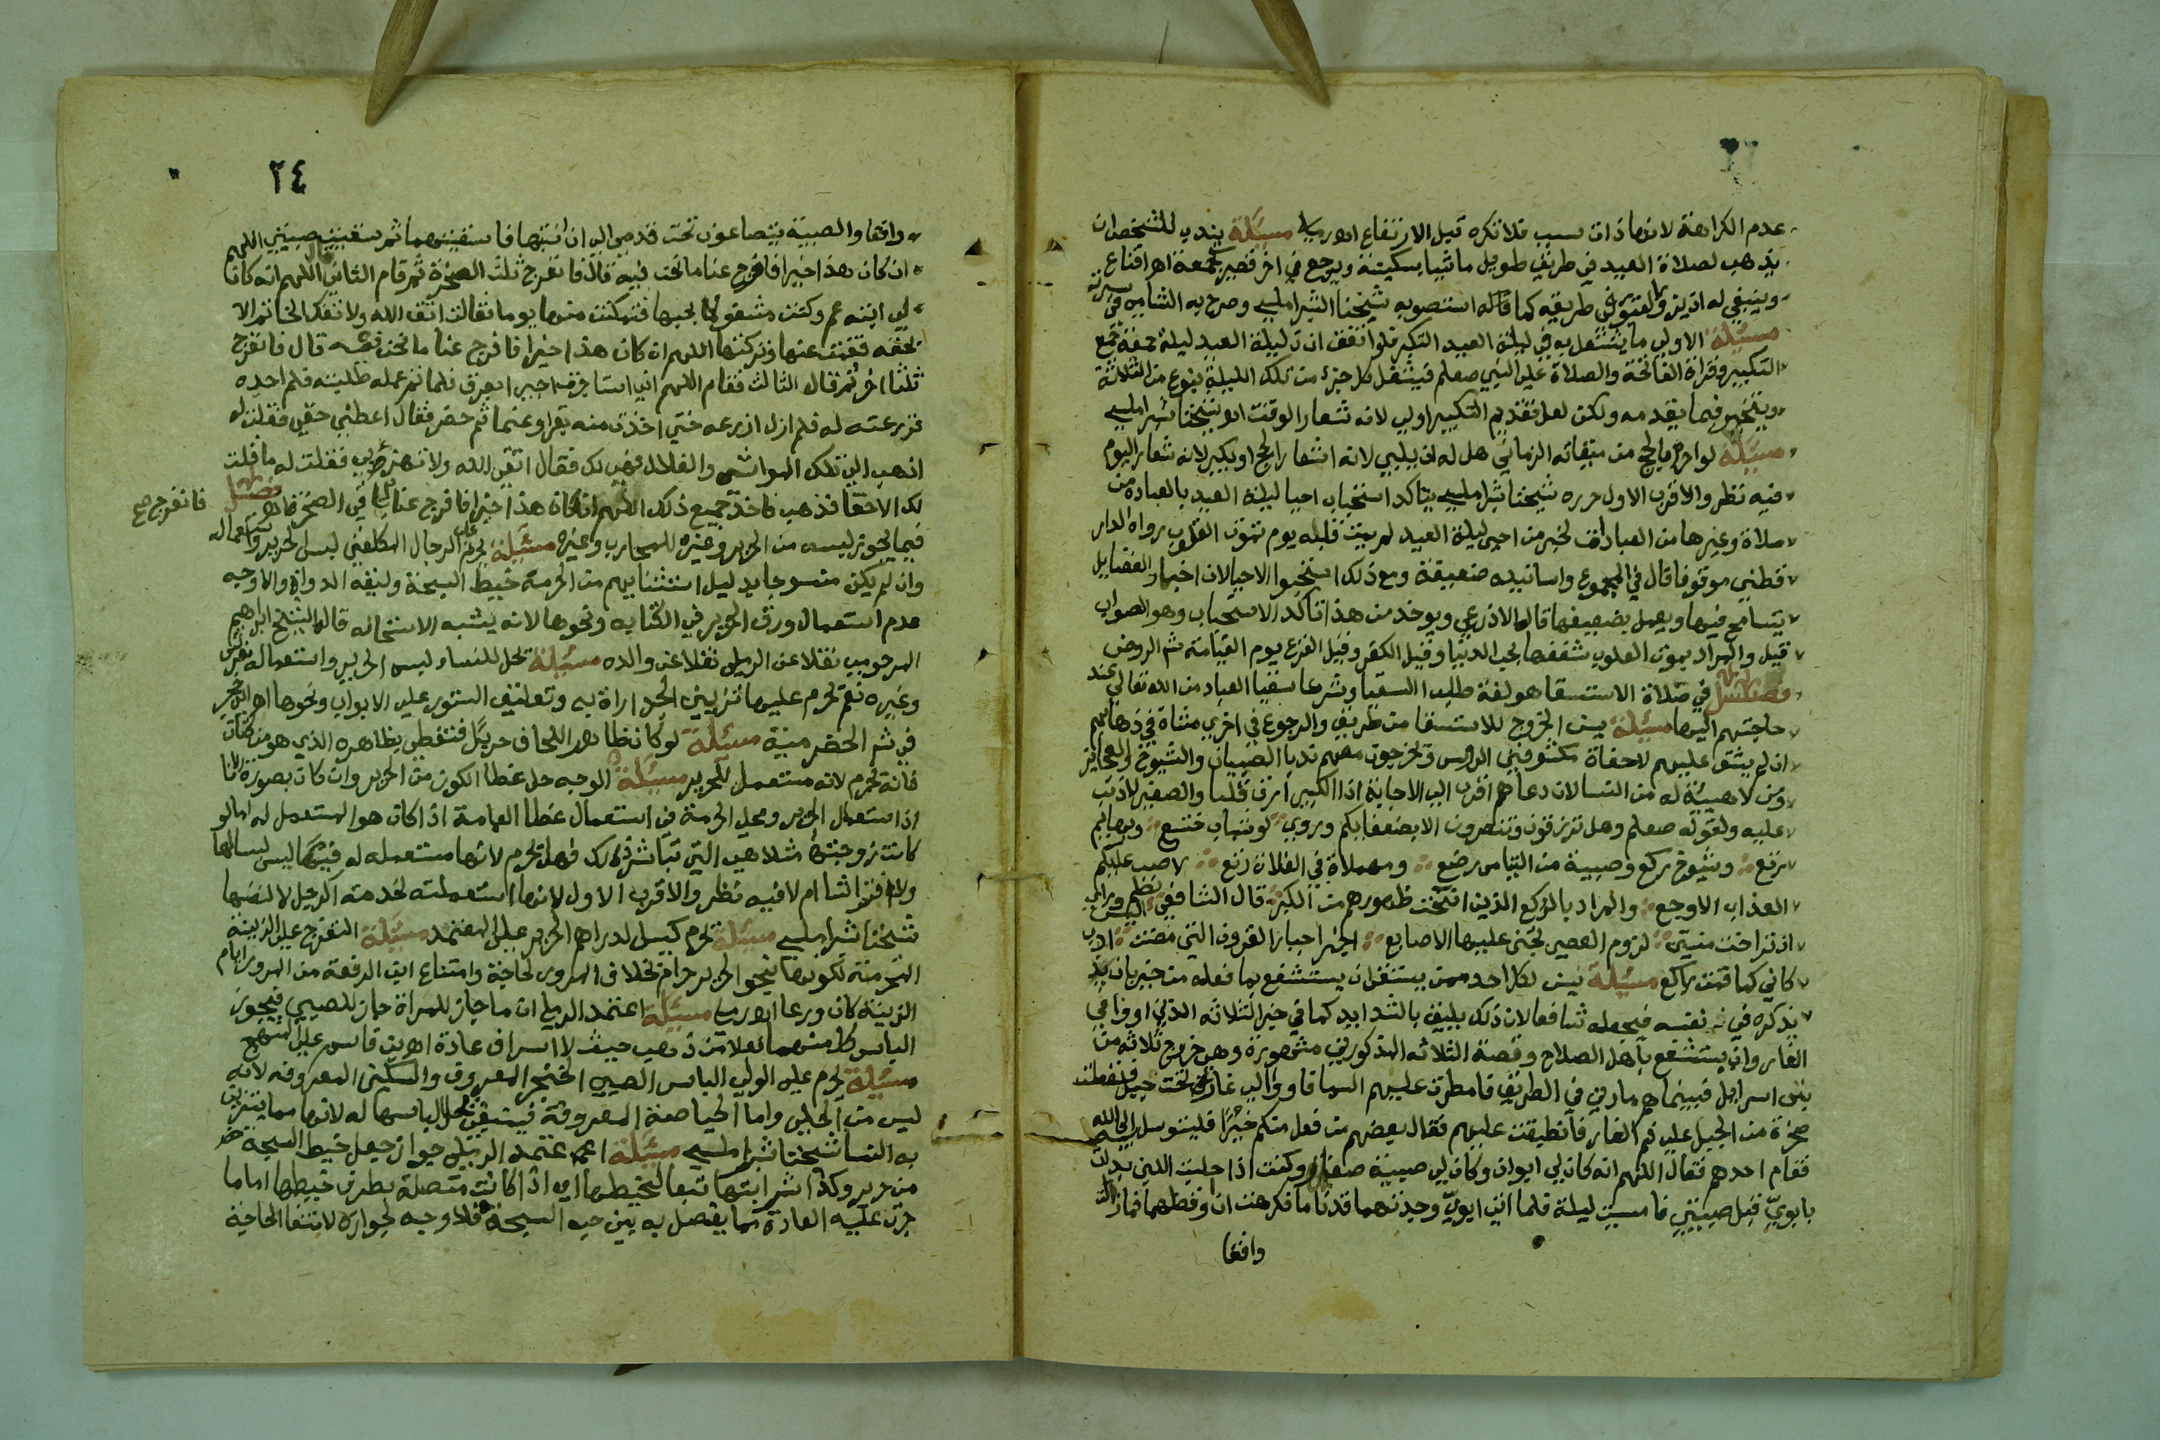 عدم الكراهة لانها ذات سبب فلا تكره قبل الارتفاع مسئلة يندب للشخص ان
يذهب لصلاة العيد في طريق طويل ماشيا بسكينة ويرجع في اخر قصير كجمعة اهـ اقناع
وينبغي له في طريقه كما قاله استصوبه شيخنا الشبراملسي وصرح به الشامي في سيرته
مسئلة الاولى ما يشتغل به في ليلة العيد التكبير فلو اتفق ان ليلة العيد ليلة جمعة جمع
التكبير وقراة الفاتحة والصلاة على النبي صعلم فيشغل كل جزء من تلك الليلة بنوع من الثلاثة
ويتخير فيما يقدمه ولكن لعل تقديم التكبير اولى لانه شعار الوقت شيخنا شبراملسي
مسئلة لو احرم بالحج من ميقاته الزماني هل له ان يلبي لانه شعار الحج او يكبر لانه شعار اليوم
فيه نظر والاقرب الاول حرره شيخنا شبراملسي يتاكد استحباب احيا ليلة العيد بالعبادة من
صلاة وغيرها من العبادات لخبر من احيى ليلة العيد لم يمت قلبه يوم تموت القلوب رواه الدار
قطني موقوفا قال في المجموع واسانيده ضعيفة ومع ذلك استحبوا الاحيا لان اخبار الفضايل
يتسامح فيها ويعمل بضعيفها قاله الاذرعي ويوخذ من هذا تاكد الاستحباب وهو الصواب
قيل والمراد بموت القلوب شغفها بحب الدنيا وقيل الكفر وقيل الفزع يوم القيامة شم الروض
فصل في صلاة الاستسقا هو لغة طلب السقيا وشرعا سقيا العباد من الله تعالى عند
حاجتهم اليها مسئلة يسن الخروج للاستسقا من طريق والرجوع في اخرى مشاة في ذهابهم
ان لم يشق عليهم لا حفاة مكشوفين الروس وتخرجون معهم ندبا الصبيان والشيوخ والعجايز
ومن لا هيئة له من النسا لان دعاهم اقرب الى الاجابة اذا الكبير ارق قلبا والصغير لا ذنب
عليه ولقوله صعلم وهل ترزقون وتنصرون الا بضعفايكم وروي لو شباب خشع وبهايم
رتع وشيوخ ركع وصبية من اليتامى رضع ومهملاة في الفلاة رتع لاصب عليكم
العذاب الاوجع والمراد بالركع الذين انحنت ظهورهم من الكبر قال الشافعي
ان تراخت منيتي لزوم العصى تحنى عليها الاصابع اخبر اخبار القرون التي مضت ادب
كاني كما قمت راكع مسئلة يسن لكل احد ممن يستسقى ان يستشفع بما فعله من خير بان
يذكره في نفسه فيجعله شافعا لان ذلك يليق بالشدايد كما في خبر الثلاثة الذين اووا في
الغار وان يستشفع باهل الصلاح وقصة الثلاثة المذكورين مشهورة وهي خرج ثلاثة من
بني اسرايل فبينما هم مارين في الطريق فامطرت عليهم السما فاووا الى غار تحت جبل
صخرة من الجبل على فم الغار فانطبقت عليهم فقال بعضهم من فعل منكم خيرا فليتوسل الى الله
فقام احدهم فقال اللهم انه كان لي ابوان وكان لي صبية صغار وكنت اذا حلبت اللبن بدات
بابوي قبل صبيتي فامسيت ليلة فلما اتيت ابوي وجدتهما قد ناما فكرهت ان اوقظهما فما زلت
واقفا
٢٤
واقفا والصبية يتصاعون تحت قدمي الى ان انتبها فاستقيتهما ثم سقيت صبيتي اللهم
ان كان هذا خيرا فافرج عنا ما نحن فيه قال فانفرج ثلث الصخرة ثم قام الثاني اللهم انه كان
لي ابنة عم وكنت مشغولا بحبها فتمكنت منها يوما فقالت اتق الله ولا تفك الخاتم الا
بحقه فعففت عنها وتركتها اللهم ان كان هذا خيرا فافرج عنا ما نحن فيه قال فانفرج
ثلثا اخر ثم قال الثالث فقام اللهم اني استاجرت اجيرا بفرق فلما تم عمله طلبته فلم اجده
فزرعته له فلم ازل ازرعه حتى اخذت منه بقرا وغنما ثم حضر فقال اعطني حقي فقلت له
اذهب الى تلك المواشي والغلال فهي لك فقال اتقي الله ولا تهزا بي فقلت له ما قلت
لك الا حقا فذهب فاخذ جميع ذلك اللهم ان كان هذا خيرا فافرج عنا في الصخر فانفرج صح فصل
فيما يجوز لبسه من الحرير وغيره للمحارب وغيره مسئلة يحرم على الرجال المكلفين لبس الحرير واستعماله
وان لم يكن منسوجا بدليل استثنايهم من الحرمة خيط السبحة وليقة الدواة والاوجه
عدم استعمال ورق الحرير في الكتابة ونحوها لانه يشبه الاستحالة قاله الشيخ ابراهيم
المرحومي نقلا عن الرملي نقلا عن والده مسئلة يحل للنساء لبس الحرير واستعماله بفرش
وغيره نعم يحرم عليها تزيين الجدارات به وتعليق الستور على الابواب ونحوها اهـ ابن حجر
في شم الحضرمية مسئلة لو كان ظاهر اللحاف حريرا فتغطى بظاهره الذي هو من كتان
فانه يحرم لانه مستعمل للحرير مسئلة الوجه حل غطا الكوز من الحرير وان كان بصورة الانا
اذ استعمال الحرير ومحل الحرمة في استعمال غطا العمامة اذا كان هو المستعمل له اما لو
كانت زوجته مثلا هي التي تباشر ذلك فهل يحرم لانها مستعملة له فيما ليس لبسا لها
ولا افتراشا ام لا فيه نظر والاقرب الاول لانها استعملته لخدمة الرجل لا لنفسها
شيخنا شبراملسي مسئلة يحرم كيس لدراهم الحرير على المعتمد مسئلة التفرج على الزينة
المحرمة لكونها بنحو الحرير حرام بخلاف المرور لحاجة وامتناع ابن الرفعة من المرور ايام
الزينة كان ورعا مسئلة اعتمد الرملي ان ما جاز للمراة جاز للصبي فيجوز
الباس كل منهما نعلا من ذهب حيث لا اسراف عادة اهـ ابن قاسم على المنهج
مسئلة يحرم على الولي الباس الصبي الخنجر المعروف والسكين المعروفة لانه
ليس من الحلي واما الحياصة المعروفة فينبغي حل الباسها له لانها مما يتزين
به النسا شيخنا شبراملسي مسئلة اعتمد الرملي جواز جعل خيط السبحة
من حرير وكذا شرابتها تبعا لخيطها اي اذا كانت متصلة بطرف خيطها اما ما
جرت عليه العادة مما يفصل به بين حب السبحة فلا وجه لجوازه لانتفا الحاجة